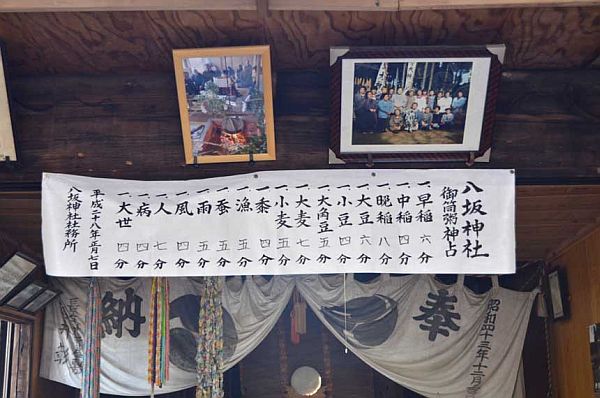 八坂神社
御筒粥神占
一早稲 六分
一中稲 四分
一晩稲 八分
一大豆 六分
一小豆 四分
一大角豆 五分
一大麦 七分
一小麦 五分
一黍 四分
一漁 五分
一蚕 五分
一雨 五分
一風 四分
一人 七分
一病 四分
一大世 四分
平成二十八年正月七日
八坂神社社務所
奉納
昭和四十三年十二月